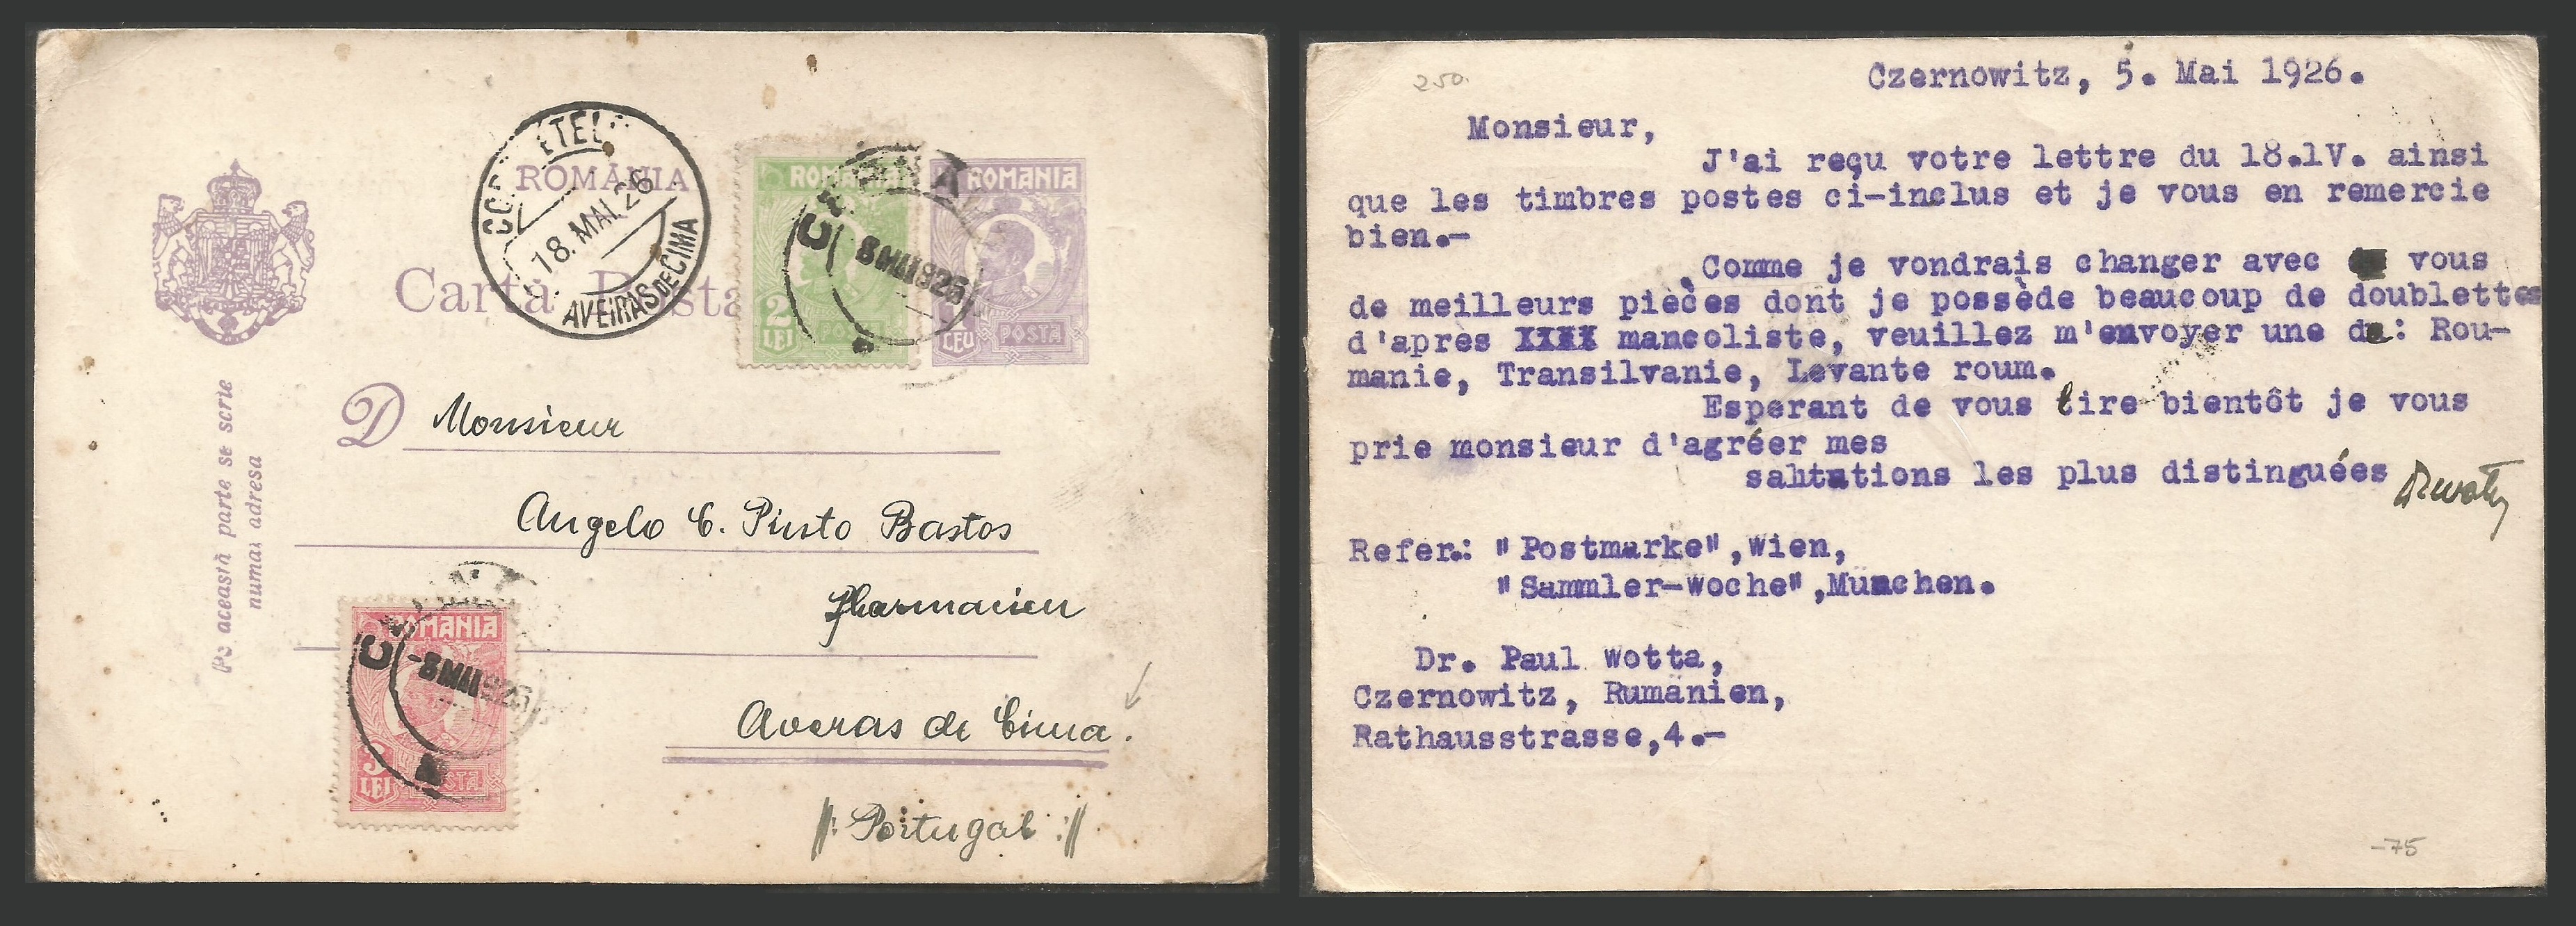 ROMÂNIA
Carta Posta
CO
TEL
18. MAI. 26
AVEIRAS DE CIMA
ROMANIA
2
LEI
POSTA
ROMANIA
LEU
POSTA
8 MAI 926
Pe această parte se scrie
numai adresa
D Monsieur
Angelo C. Pinto Bastos
pharmacien
Averas de Cima.
//: Portugal ://
ROMANIA
3
LEI
POSTA
-8 MAI 926
250.
Czernowitz, 5. Mai 1926.
Monsieur,
J'ai reçu votre lettre du 18.1V. ainsi
que les timbres postes ci-inclus et je vous en remercie
bien.-
Comme je vondrais changer avec vous
de meilleurs pièces dont je possède beaucoup de doublettes
d'apres XXXX mancoliste, veuillez m'envoyer une de: Rou-
manie, Transilvanie, Levante roum.
Esperant de vous lire bientôt je vous
prie monsieur d'agréer mes
sahtutions les plus distinguées
Refer.: "Postmarke",Wien,
"Sammler-Woche",Munchen.
Dr. Paul Wotta,
Czernowitz, Rumänien,
Rathausstrasse,4.-
-75